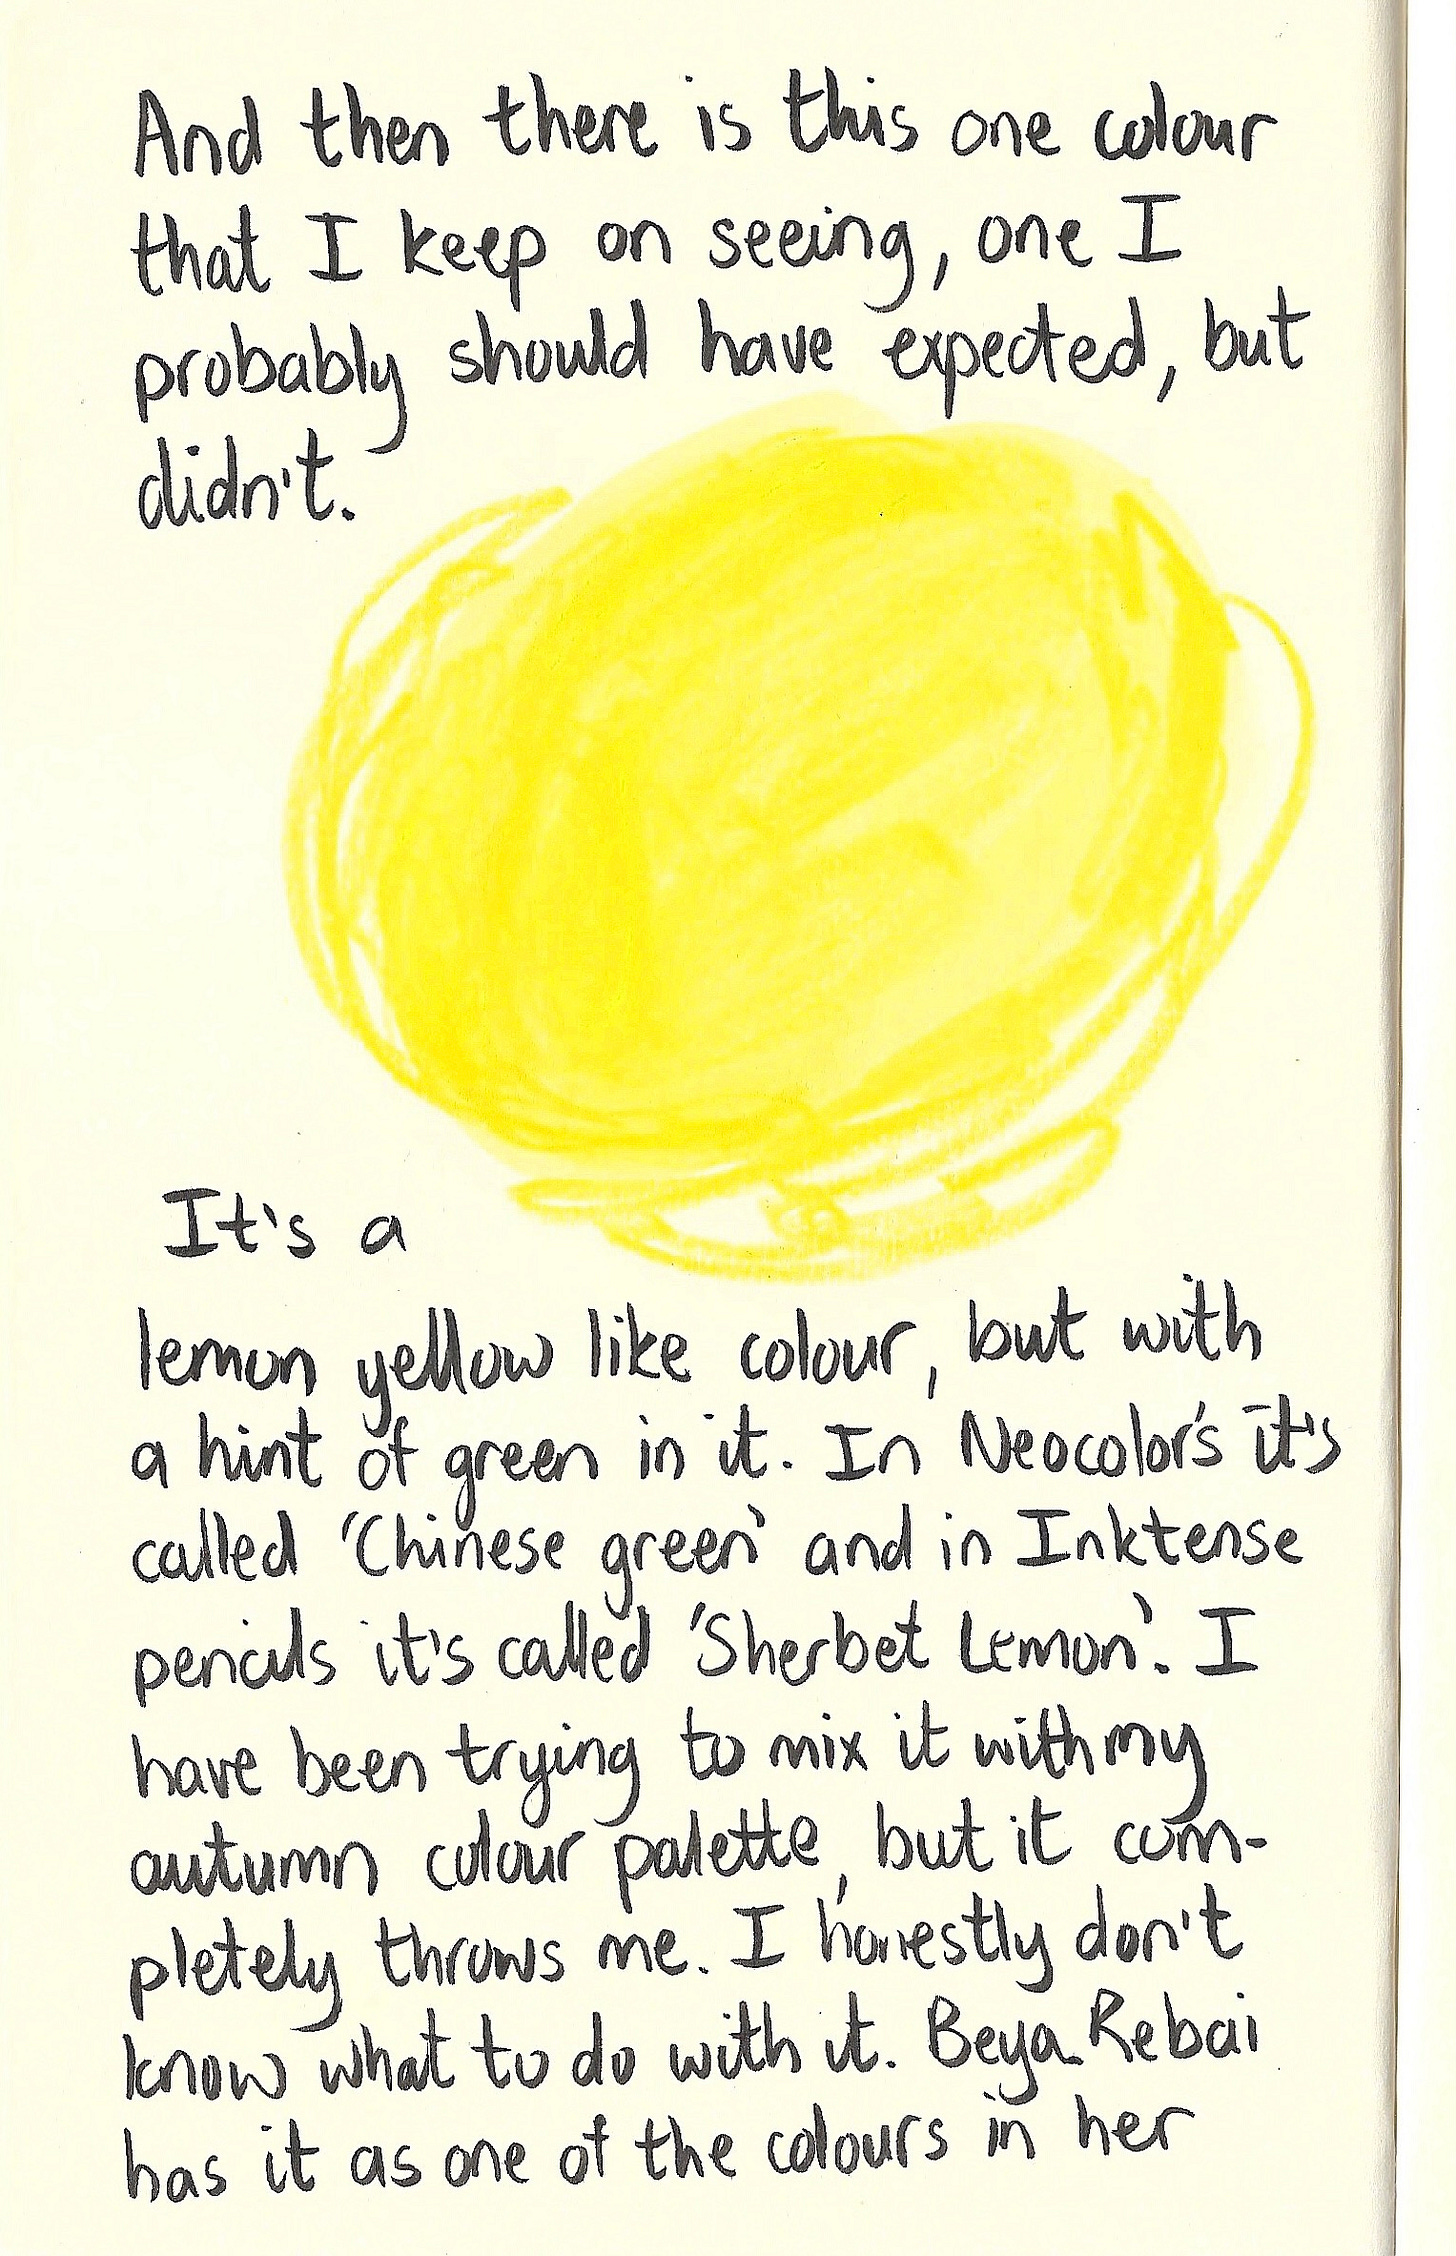 And then there is this one colour
that I keep on seeing, one I
probably should have expected, but
didn't.
It's a
lemon yellow like colour, but with
a hint of green in it. In Neocolor's it's
called 'Chinese green' and in Inktense
pencils it's called 'Sherbet Lemon'. I
have been trying to mix it with my
autumn colour palette, but it com-
pletely throws me. I honestly don't
know what to do with it. Beya Rebai
has it as one of the colours in her